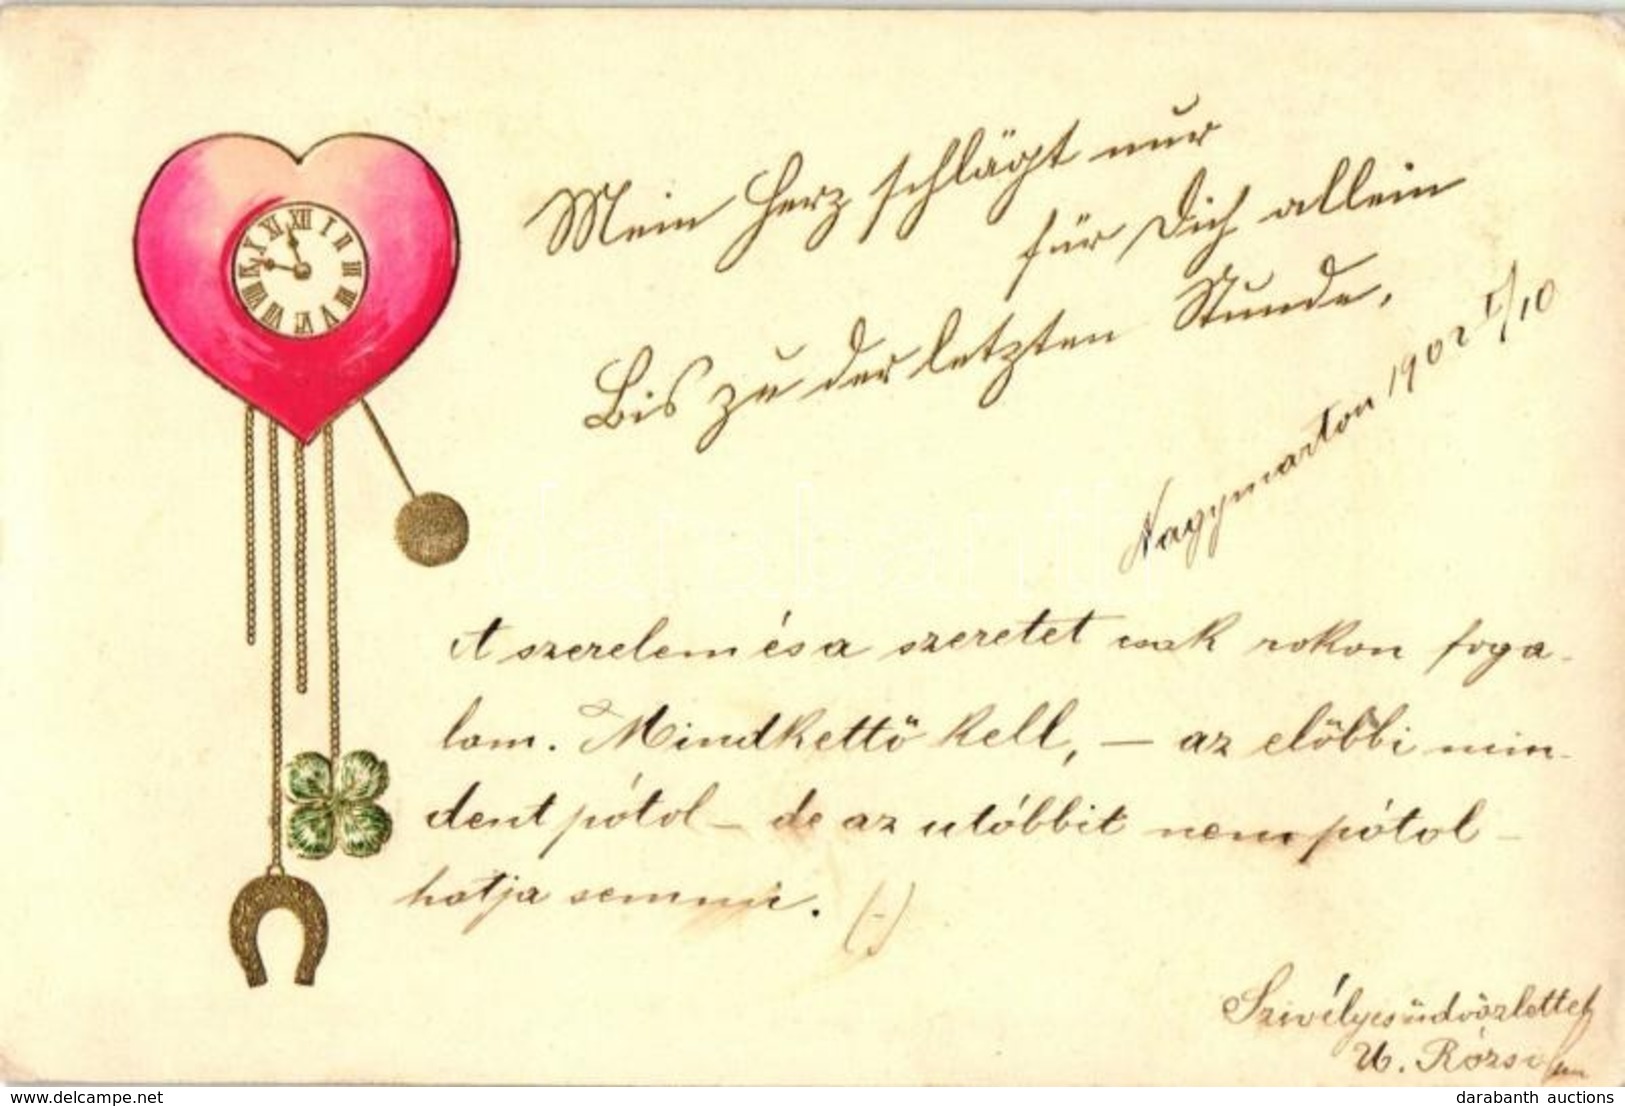 XII I II III IIII V VI VII VIII IX X XI
Mein Herz schlägt nur
für Dich allein
Bis zu der letzten Stunde.
Nagymarton 1902 I/10
A szerelem és a szeretet csak rokon foga-
lom. Mindkettő kell, — az előbbi min-
dent pótol — de az utóbbit nem pótol-
hatja semmi. (-)
Szivélyes üdvözlettel
U. Rózsi
darabanth
delcampe.net
darabanth auctions